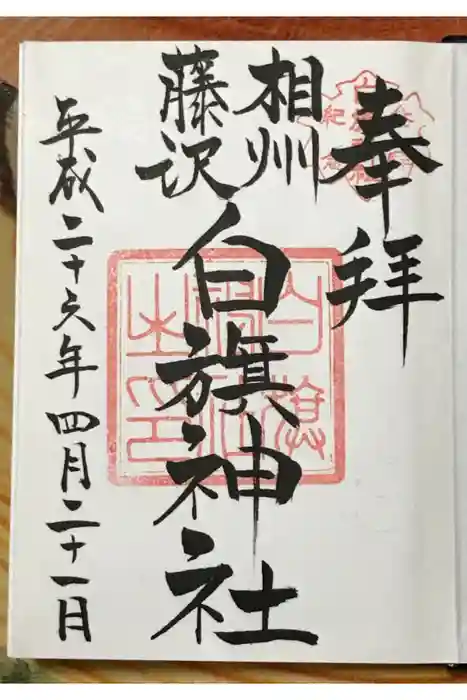 奉拝
相州
藤沢
白旗神社
平成二十六年四月二十一日
白旗神社之印